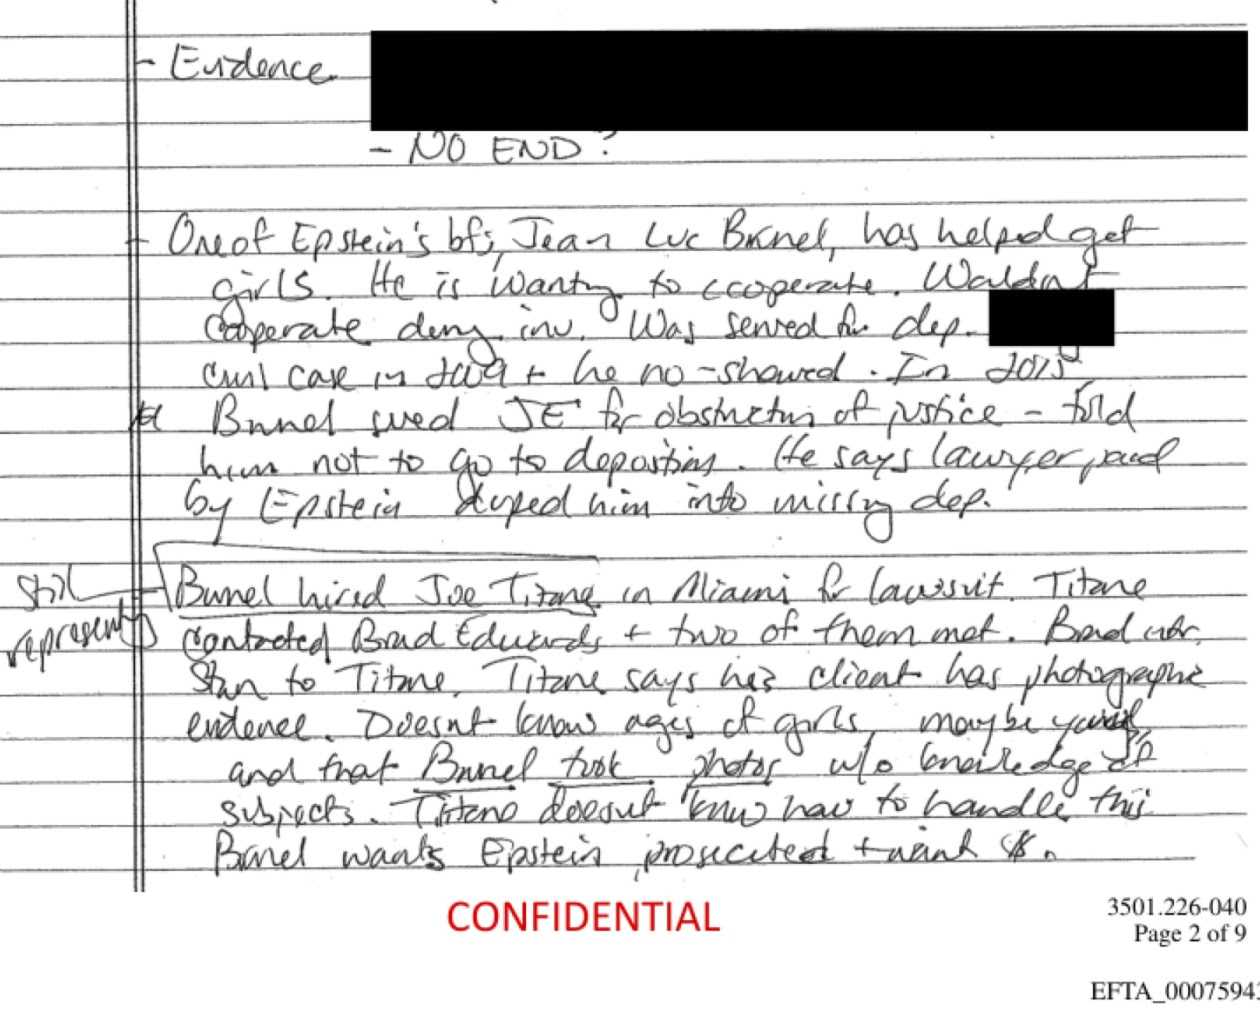 - Evidence
- NO END?
- One of Epstein's bfs, Jean Luc Brunel, has helped get
girls. He is wanting to cooperate. Wouldn't
cooperate during inv. Was served for dep.
civil case in 2009 + he no-showed. In 2015
Brunel sued JE for obstruction of justice - told
him not to go to deposition. He says lawyer paid
by Epstein duped him into missing dep.
Still
represents
- Brunel hired Joe Titone in Miami for lawsuit. Titone
contacted Brad Edwards + two of them met. Brad
Stan to Titone. Titone says his client has photographic
evidence. Doesn't know ages of girls, maybe
and that Brunel took photos w/o knowledge of
subjects. Titone doesn't know how to handle this
Brunel wants Epstein prosecuted + want $.
CONFIDENTIAL
3501.226-040
Page 2 of 9